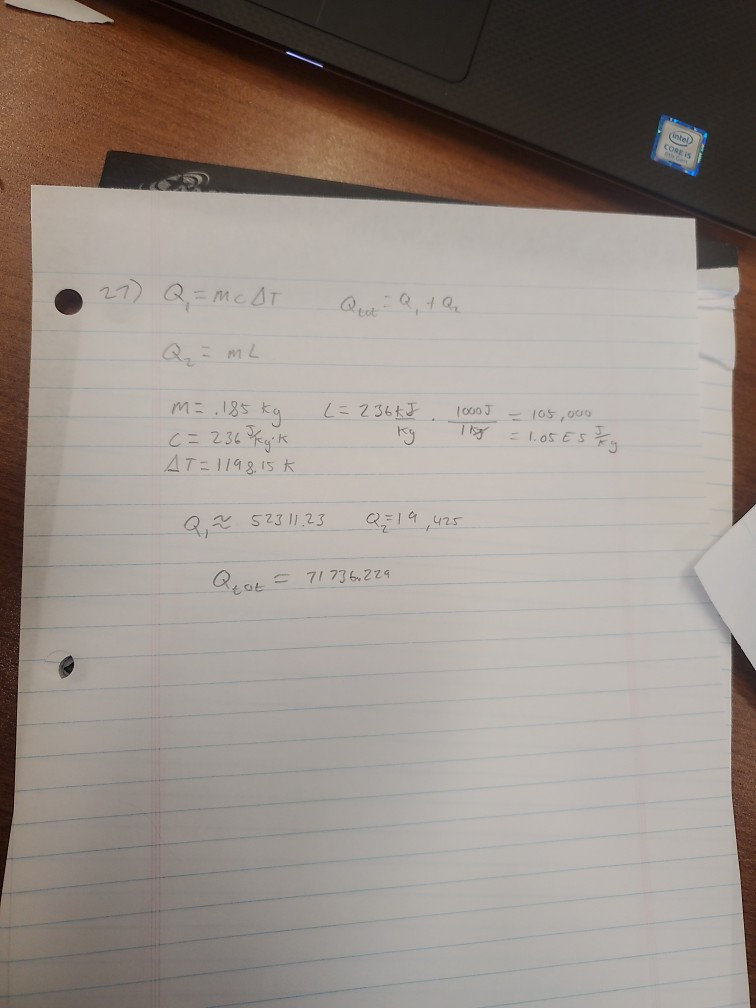 intel
CORE i5
27) Q₁ = mcΔT    Q_tot = Q₁ + Q₂
Q₂ = mL
m = .185 kg    L = 236 kJ/kg · 1000J/1kJ = 105,000
C = 236 J/kg·K    = 1.05 E5 J/kg
ΔT = 1198.15 K
Q₁ ≈ 52311.23    Q₂ = 19,425
Q_tot = 71736.229